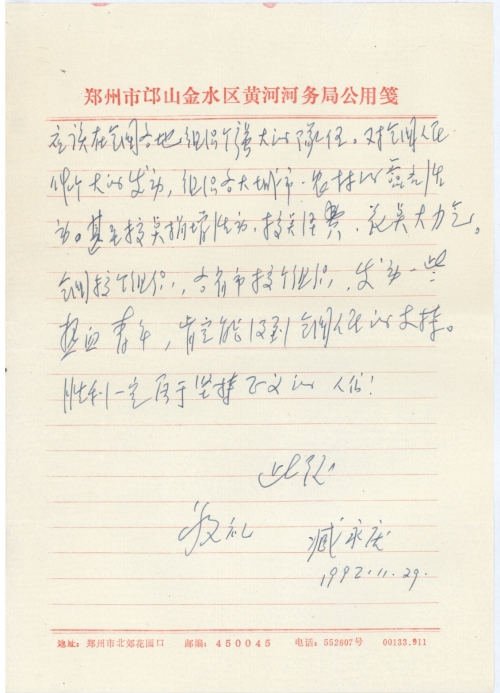 郑州市邙山金水区黄河河务局公用笺
应该在全国各地组织个强大的队伍。对全国人民
作个大的发动,组织各大城市、农村的 活
动。甚至搞募捐活动,搞些经费、花些大力气。
全国搞个组织,各省市搞个组织,发动一些
热血青年,肯定能得到全国人民的支持。
胜利一定属于坚持正义的人们!
此致
敬礼
臧永庆
1992.11.29.
地址:郑州市北郊花园口 邮编:450045 电话:552607号 00133.911